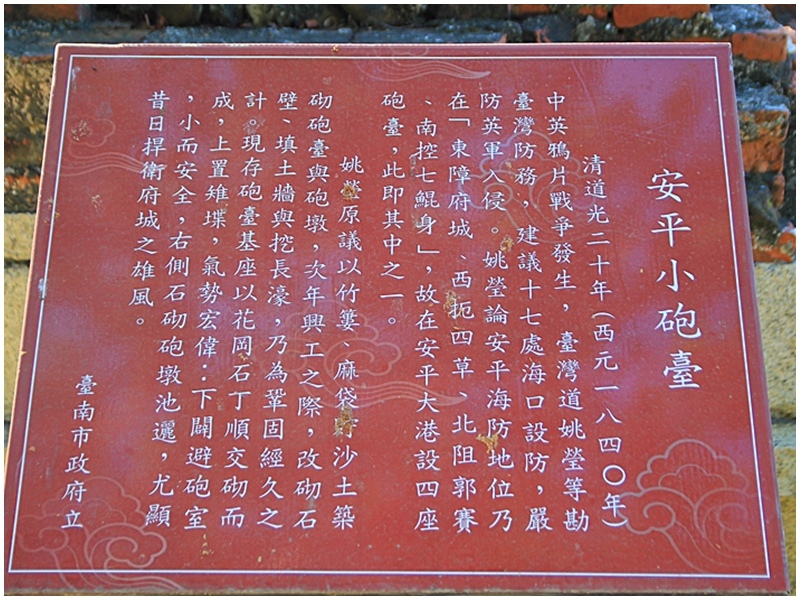 安平小砲臺
清道光二十年（西元一八四〇年）
中英鴉片戰爭發生，臺灣道姚瑩等勘
臺灣防務，建議十七處海口設防，嚴
防英軍入侵。姚瑩論安平海防地位乃
在「東障府城、西扼四草、北阻郭賽
、南控七鯤身」，故在安平大港設四座
砲臺，此即其中之一。
姚瑩原議以竹簍、麻袋貯沙土築
砌砲臺與砲墩，次年興工之際，改砌石
壁、填土牆與挖長濠，乃為鞏固經久之
計。現存砲臺基座以花岡石丁順交砌而
成，上置雉堞，氣勢宏偉：下闢避砲室
，小而安全，右側石砌砲墩池邐，尤顯
昔日捍衛府城之雄風。
臺南市政府立